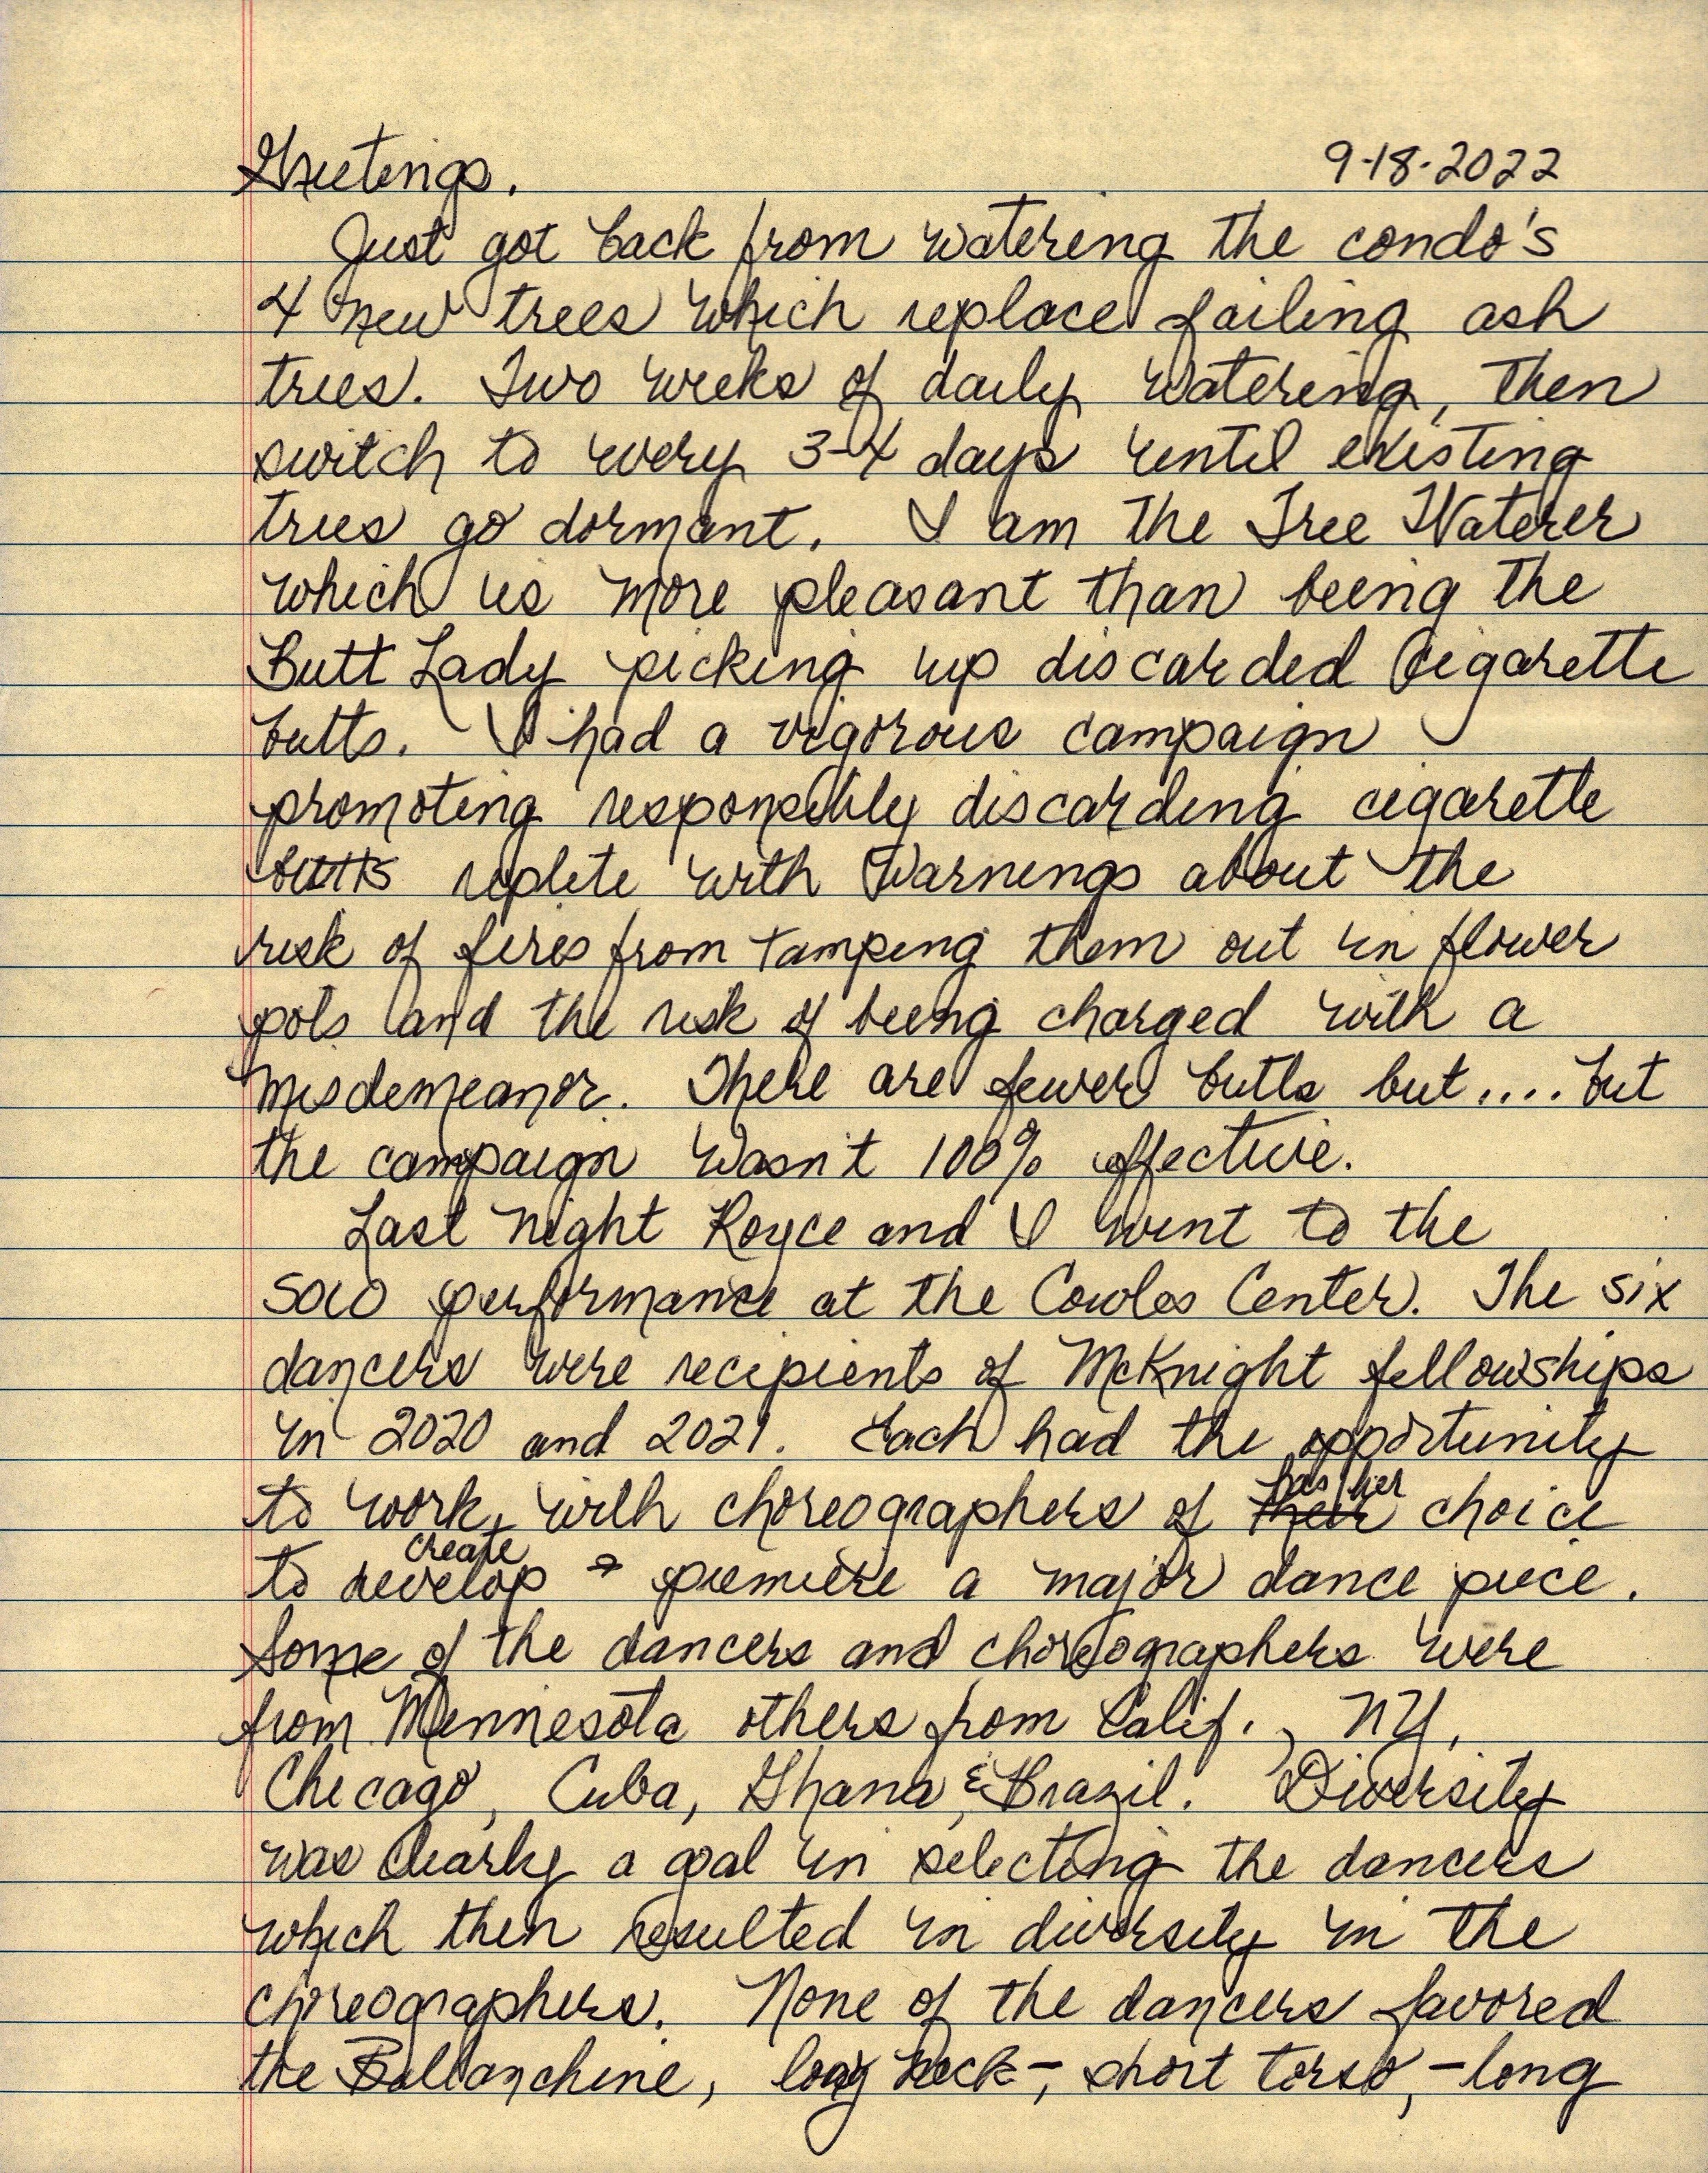 Greetings. 9-18-2022
Just got back from watering the condo's
4 new trees which replace failing ash
trees. Two weeks of daily watering, then
switch to every 3-4 days until existing
trees go dormant. I am the Tree Waterer
which is more pleasant than being the
Butt Lady picking up discarded cigarette
butts. I had a vigorous campaign
promoting responsibly discarding cigarette
butts replete with warnings about the
risk of fires from tamping them out in flower
pots and the risk of being charged with a
misdemeanor. There are fewer butts but.... but
the campaign wasn't 100% effective.
Last night Royce and I went to the
SOLO performance at the Cowles Center. The six
dancers were recipients of McKnight fellowships
in 2020 and 2021. Each had the opportunity
to work with choreographers of their his/her choice
to develop create + premiere a major dance piece.
Some of the dancers and choreographers were
from Minnesota others from Calif., NY,
Chicago, Cuba, Ghana, & Brazil. Diversity
was clearly a goal in selecting the dancers
which then resulted in diversity in the
choreographers. None of the dancers favored
the Ballanchine, long neck-, short torso,-long